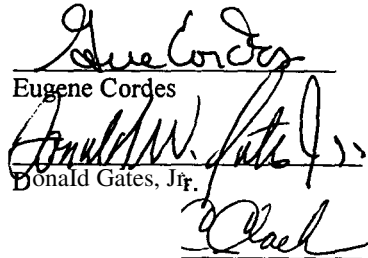 Gene Cordes
Eugene Cordes
Donald W. Gates Jr.
Donald Gates, Jr.